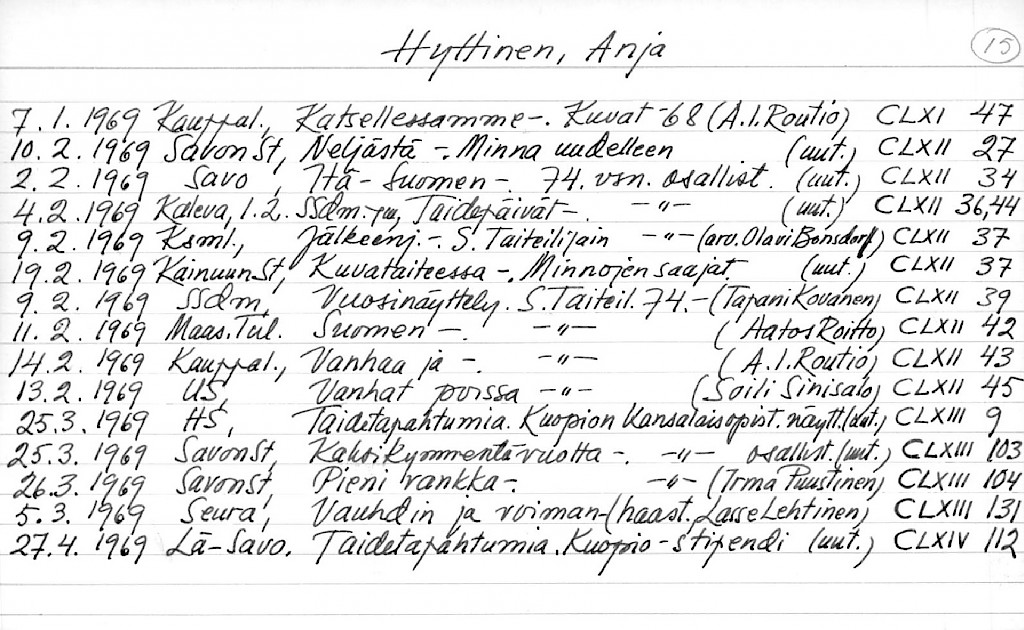 Hyttinen, Anja 15
7.1.1969 Kauppal., Katsellessamme-. Kuvat -68 (A.I.Routio) CLXI 47
10.2.1969 SavonSt, Neljästä -. Minna uudelleen (uut.) CLXII 27
2.2.1969 Savo, Itä-Suomen-. 74. vsn. osallist. (uut.) CLXII 34
4.2.1969 Kaleva, 1.2. SSdm. Taidepäivät-. -"- (uut.) CLXII 36,44
9.2.1969 Ksml., Jälkeenj.-. S.Taiteilijain -"- (arv. Olavi Bonsdorf) CLXII 37
19.2.1969 KainuunSt, Kuvataiteessa -. Minnojen saajat (uut.) CLXII 37
9.2.1969 SSdm, Vuosinäyttely. S.Taiteil. 74.- (Tapani Kovanen) CLXII 39
11.2.1969 Maas.Tul. Suomen -. -"- (Aatos Roitto) CLXII 42
14.2.1969 Kauppal., Vanhaa ja -. -"- (A.I.Routio) CLXII 43
13.2.1969 US, Vanhat poissa -"- (Soili Sinisalo) CLXII 45
25.3.1969 HS, Taidetapahtumia. Kuopion Kansalaisopist. näytt. (uut.) CLXIII 9
25.3.1969 SavonSt, Kaksikymmentä vuotta -. -"- osallist. (uut.) CLXIII 103
26.3.1969 SavonSt, Pieni vankka-. -"- (Irma Puustinen) CLXIII 104
5.3.1969 Seura, Vauhdin ja voiman- (haast. Lasse Lehtinen) CLXIII 131
27.4.1969 Lä-Savo. Taidetapahtumia. Kuopio-stipendi (uut.) CLXIV 112